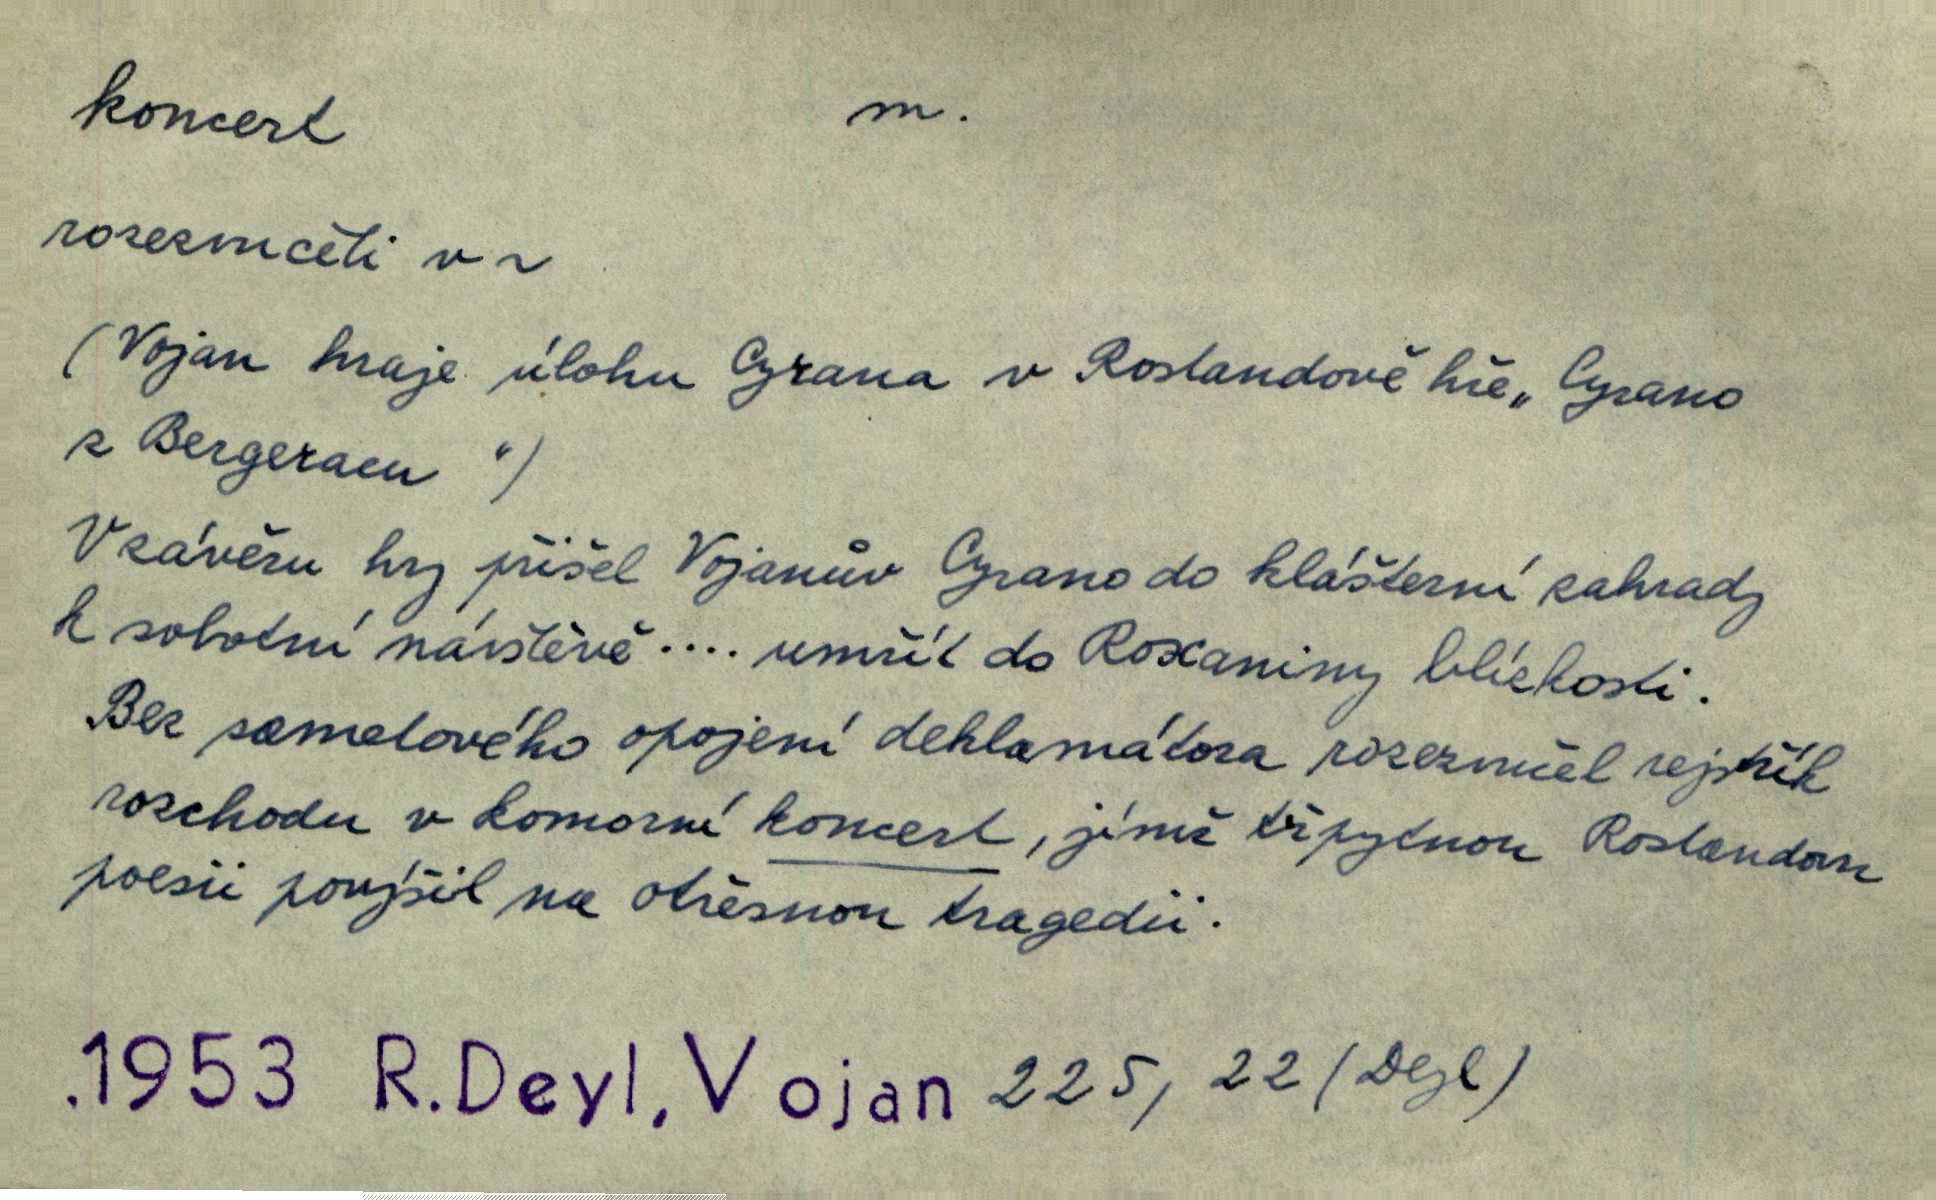 koncert m.
rozezvučeti v ~
(Vojan hraje úlohu Cyrana v Rostandově hře „Cyrano
z Bergeracu ")
V závěru hry přišel Vojanův Cyrano do klášterní zahrady
k sobotní návštěvě .... umřít do Roxaniny blízkosti.
Bez sametového opojení deklamátora rozezvučel rejstřík
rozchodu v komorní koncert, jímž třpytnou Rostandovu
poesii povýšil na otřesnou tragedii.
.1953 R.Deyl, Vojan 225, 22 (Deyl)